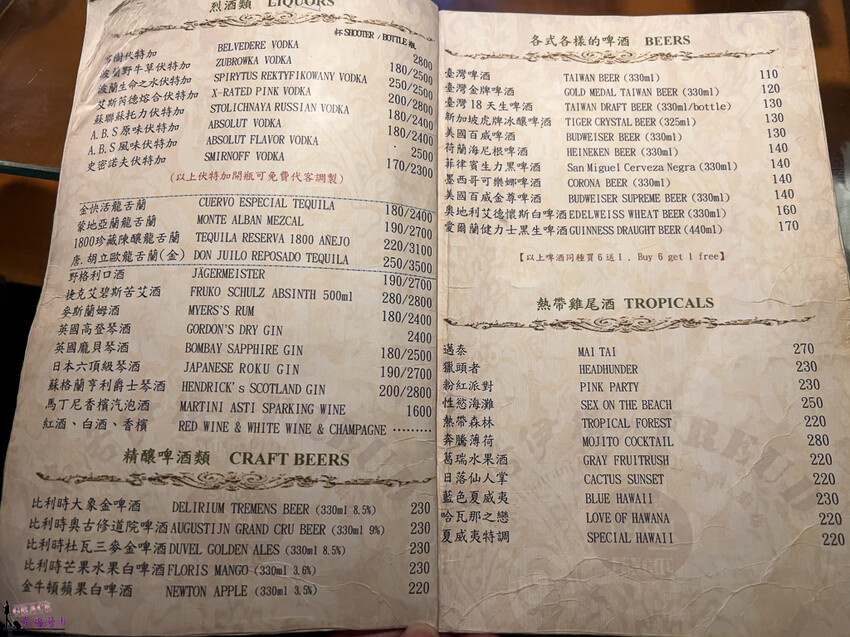 烈酒類 LIQUORS
杯SHOOTER / BOTTLE瓶
雪樹伏特加 BELVEDERE VODKA 2800
波蘭野牛草伏特加 ZUBROWKA VODKA 180/2500
波蘭生命之水伏特加 SPIRYTUS REKTYFIKOWANY VODKA 250/2500
艾斯芮德熔合伏特加 X-RATED PINK VODKA 200/2800
蘇聯蘇托力伏特加 STOLICHNAYA RUSSIAN VODKA 180/2400
A.B.S原味伏特加 ABSOLUT VODKA 180/2400
A.B.S風味伏特加 ABSOLUT FLAVOR VODKA 2500
史密諾夫伏特加 SMIRNOFF VODKA 170/2300
(以上伏特加開瓶可免費代客調製)
金快活龍舌蘭 CUERVO ESPECIAL TEQUILA 180/2400
蒙地亞蘭龍舌蘭 MONTE ALBAN MEZCAL 190/2700
1800珍藏陳釀龍舌蘭 TEQUILA RESERVA 1800 AÑEJO 220/3100
唐.胡立歐龍舌蘭(金) DON JUILO REPOSADO TEQUILA 250/3500
野格利口酒 JÄGERMEISTER 190/2700
捷克艾碧斯苦艾酒 FRUKO SCHULZ ABSINTH 500ml 280/2800
麥斯蘭姆酒 MYERS'S RUM 180/2400
英國高登琴酒 GORDON'S DRY GIN 2400
英國龐貝琴酒 BOMBAY SAPPHIRE GIN 180/2500
日本六頂級琴酒 JAPANESE ROKU GIN 190/2700
蘇格蘭亨利爵士琴酒 HENDRICK's SCOTLAND GIN 200/2800
馬丁尼香檳汽泡酒 MARTINI ASTI SPARKING WINE 1600
紅酒、白酒、香檳 RED WINE & WHITE WINE & CHAMPAGNE ·········
精釀啤酒類 CRAFT BEERS
比利時大象金啤酒 DELIRIUM TREMENS BEER (330ml 8.5%) 230
比利時奧古修道院啤酒 AUGUSTIJN GRAND CRU BEER (330ml 9%) 230
比利時杜瓦三麥金啤酒 DUVEL GOLDEN ALES (330ml 8.5%) 230
比利時芒果水果白啤酒 FLORIS MANGO (330ml 3.6%) 230
金牛頓蘋果白啤酒 NEWTON APPLE (330ml 3.5%) 220
各式各樣的啤酒 BEERS
臺灣啤酒 TAIWAN BEER (330ml) 110
臺灣金牌啤酒 GOLD MEDAL TAIWAN BEER (330ml) 120
臺灣18天生啤酒 TAIWAN DRAFT BEER (330ml/bottle) 130
新加坡虎牌冰釀啤酒 TIGER CRYSTAL BEER (325ml) 130
美國百威啤酒 BUDWEISER BEER (330ml) 130
荷蘭海尼根啤酒 HEINEKEN BEER (330ml) 140
菲律賓生力黑啤酒 San Miguel Cerveza Negra (330ml) 140
墨西哥可樂娜啤酒 CORONA BEER (330ml) 140
美國百威金尊啤酒 BUDWEISER SUPREME BEER (330ml) 140
奧地利艾德懷斯白啤酒 EDELWEISS WHEAT BEER (330ml) 160
愛爾蘭健力士黑生啤酒 GUINNESS DRAUGHT BEER (440ml) 170
【以上啤酒同種買6送1，Buy 6 get 1 free】
熱帶雞尾酒 TROPICALS
邁泰 MAI TAI 270
獵頭者 HEADHUNDER 230
粉紅派對 PINK PARTY 230
性慾海灘 SEX ON THE BEACH 250
熱帶森林 TROPICAL FOREST 220
奔騰薄荷 MOJITO COCKTAIL 280
葛瑞水果酒 GRAY FRUITRUSH 220
日落仙人掌 CACTUS SUNSET 220
藍色夏威夷 BLUE HAWAII 230
哈瓦那之戀 LOVE OF HAWANA 220
夏威夷特調 SPECIAL HAWAII 220